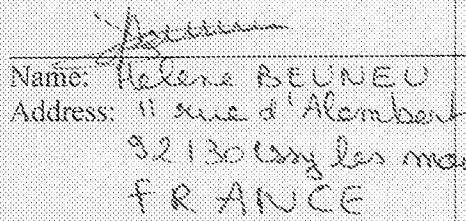 Name: Helene BEUNEU
Address: 11 rue d'Alembert
92130 Issy les
FRANCE